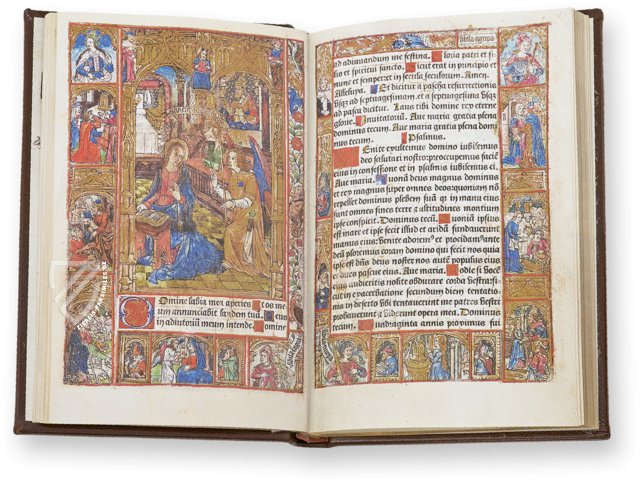 Domine labia mea aperies Et os me
um annunciabit laudem tuā. Deus
in adiutoriū meum intende. Domine
ad adiuuandum me festina. Gloria patri et fi
lio et spiritui sancto. Sicut erat in principio et
nunc et semper et in secula seculorum. Amen.
Alleluya. Et dicitur a pascha resurrectionis
vsq̄ ad septuagesimā. et a septuagesima vsq̄
ad pascha dicitur. Laus tibi domine rex eterne
glorie. Inuitatoriū. Aue maria gratia plena
dominus tecum. Aue maria gratia plena dom
nus tecum. Psalmus.
Venite exultemus domino iubilemus
deo salutari nostro: preoccupemus faciē
eius in confessione et in psalmis iubilemus ei.
Aue maria. Quoniā deus magnus dominus
et rex magnus super omnes deos: quoniam non
repellet dominus plebem suā q̄ in manu eius
sunt omnes fines terre et altitudines montium
ipse conspicit. Dominus tecū. Quoniā ipsius
est mare et ipse fecit illud et aridā fundauerunt
manus eius: Venite adorem᷒ et procidam᷒ ante
deū ploremus coram domino qui fecit nos quia
ipse est dominus deus noster nos autē populus eius et
oues pascue eius. Aue maria. Hodie si vocē
eius audieritis nolite obdurare corda vestra: si
cut in exacerbatione secundum diem tentatio
nis in deserto vbi tentauerunt me patres vestri
probauerunt & viderunt opera mea. Dominus
tecum. Quadraginta annis proximus fui